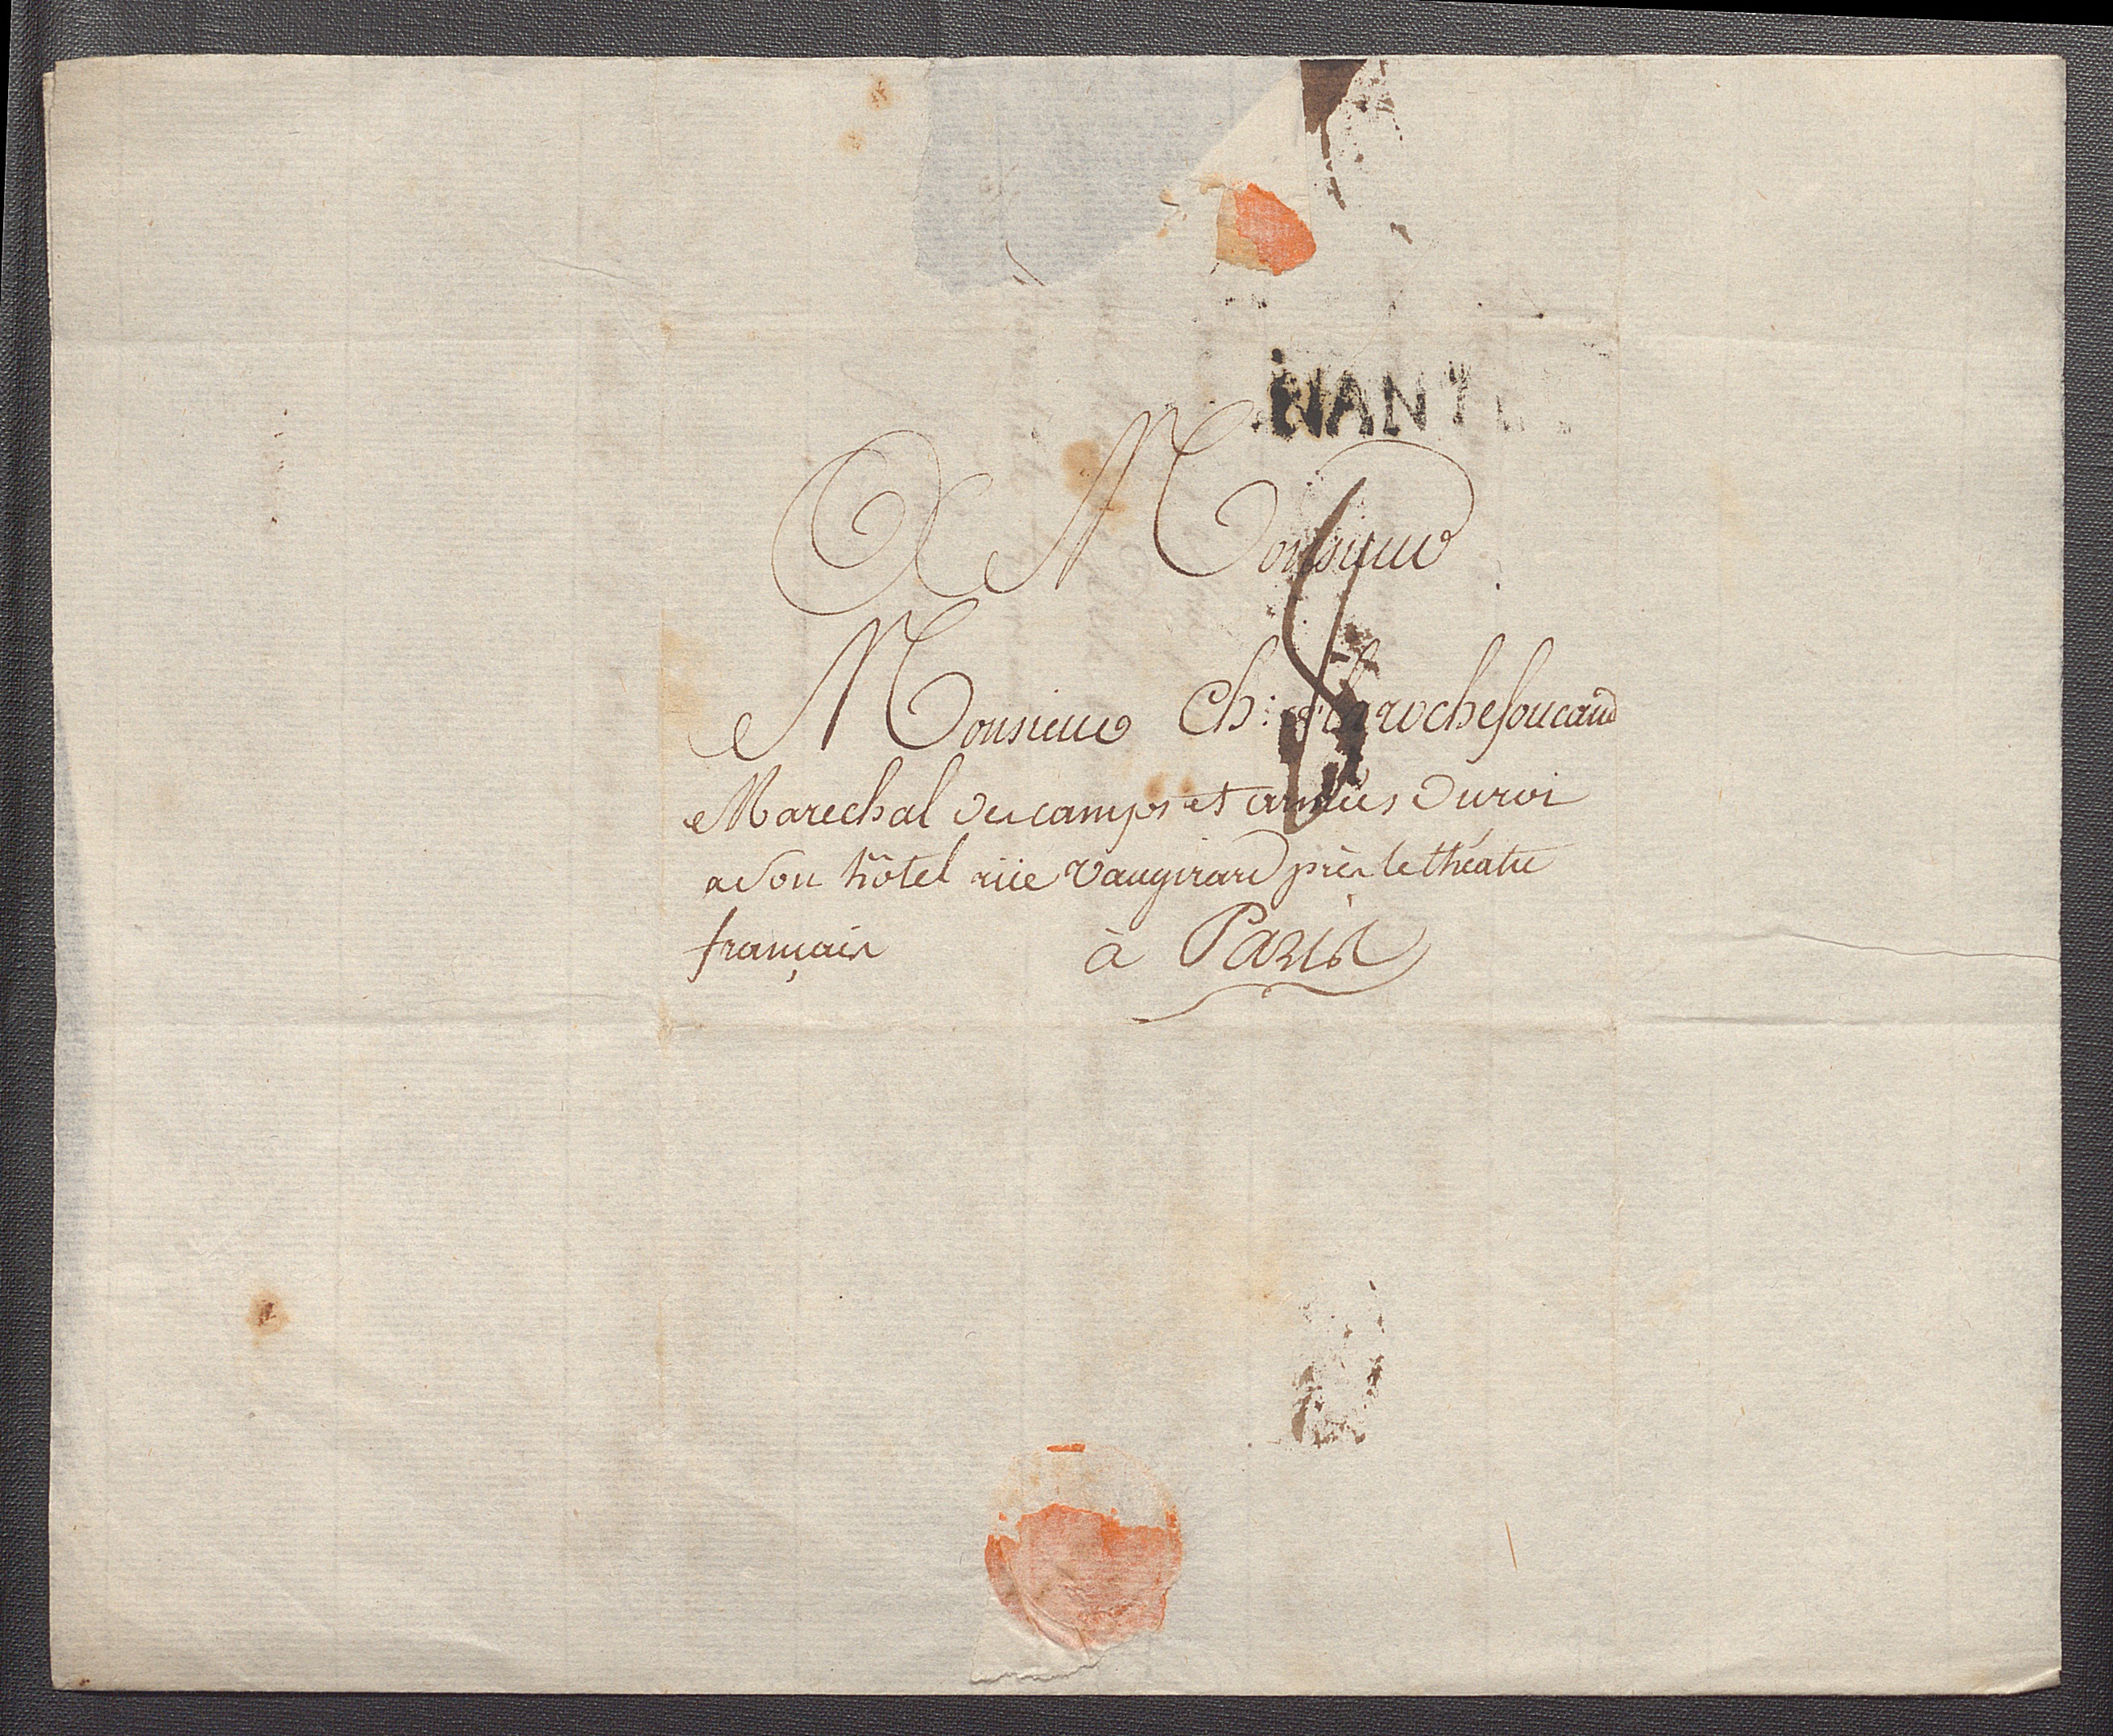 NANT
A Monsieur
Monsieur Ch: de larochefoucaud
Marechal des camps et armées du roi
a son hôtel rüe Vaugirard près le théatre
français à Paris